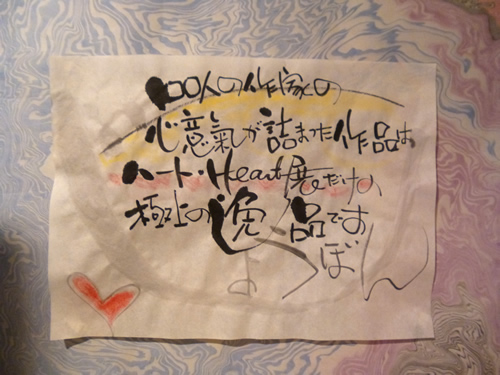 100人の作家の
心意氣が詰まった作品は
ハート・Heart展だけの
極上の逸品です
ようぼん